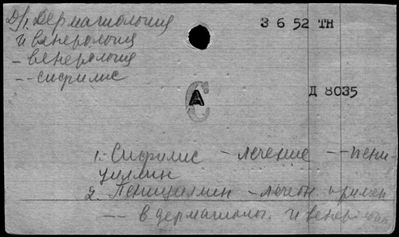 Д/1. Дерматология
3 6 52 ТН
и венерология
– венерология
– – сифилис
А
С
Д 8035
1. Сифилис – лечение – – пени-
циллин
2. Пенициллин – лечен.
– – в дерматолог. и венерологии